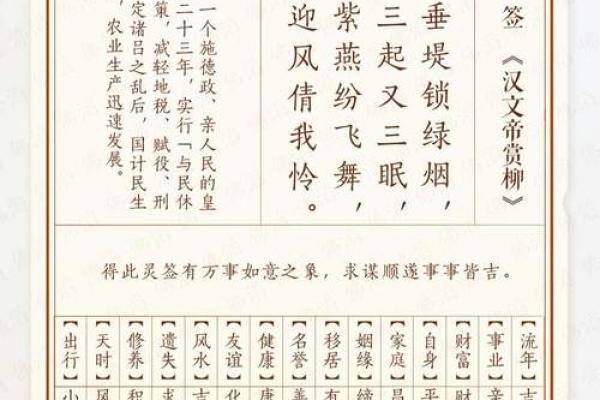 签 《汉文帝赏柳》
垂堤锁绿烟，
三起又三眠，
紫燕纷飞舞，
迎风倩我怜。
一个施德政、亲人民的皇
二十三年，实行「与民休
策，减轻地税、赋役、刑
定诸吕之乱后，国计民生
，农业生产迅速发展。
得此灵签有万事如意之象，求谋顺遂事事皆吉。
【流年】吉
【事业】亲
【财富】财
【自身】平
【家庭】昌
【姻缘】缔
【移居】有
【名誉】善
【健康】康
【友谊】化
【风水】吉
【遗失】求
【修养】积
【天时】风
【出行】小